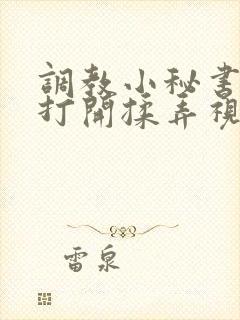 調教小秘書
打開揉弄視
雷泉